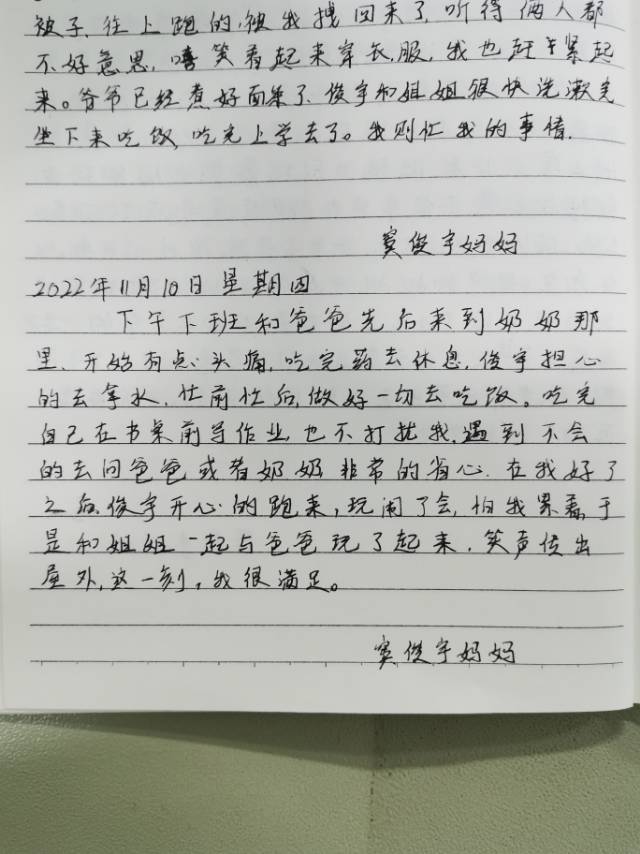 被子,往上跑的,被我拽回来了,听得俩人都
不好意思,嘻笑着起来穿衣服,我也赶紧起
来。爷爷已经煮好面条了,俊宇和姐姐很快洗漱完
坐下来吃饭,吃完上学去了。我则忙我的事情.
窦俊宇妈妈
2022年11月10日星期四
下午下班和爸爸先后来到奶奶那
里,开始有点头痛,吃完药去休息,俊宇担心
的去拿水,忙前忙后,做好一切去吃饭。吃完
自己在书桌前写作业,也不打扰我,遇到不会
的去问爸爸或者奶奶非常的省心.在我好了
之后,俊宇开心的跑来,玩闹了会,怕我累着于
是和姐姐一起与爸爸玩了起来,笑声传出
屋外,这一刻,我很满足。
窦俊宇妈妈